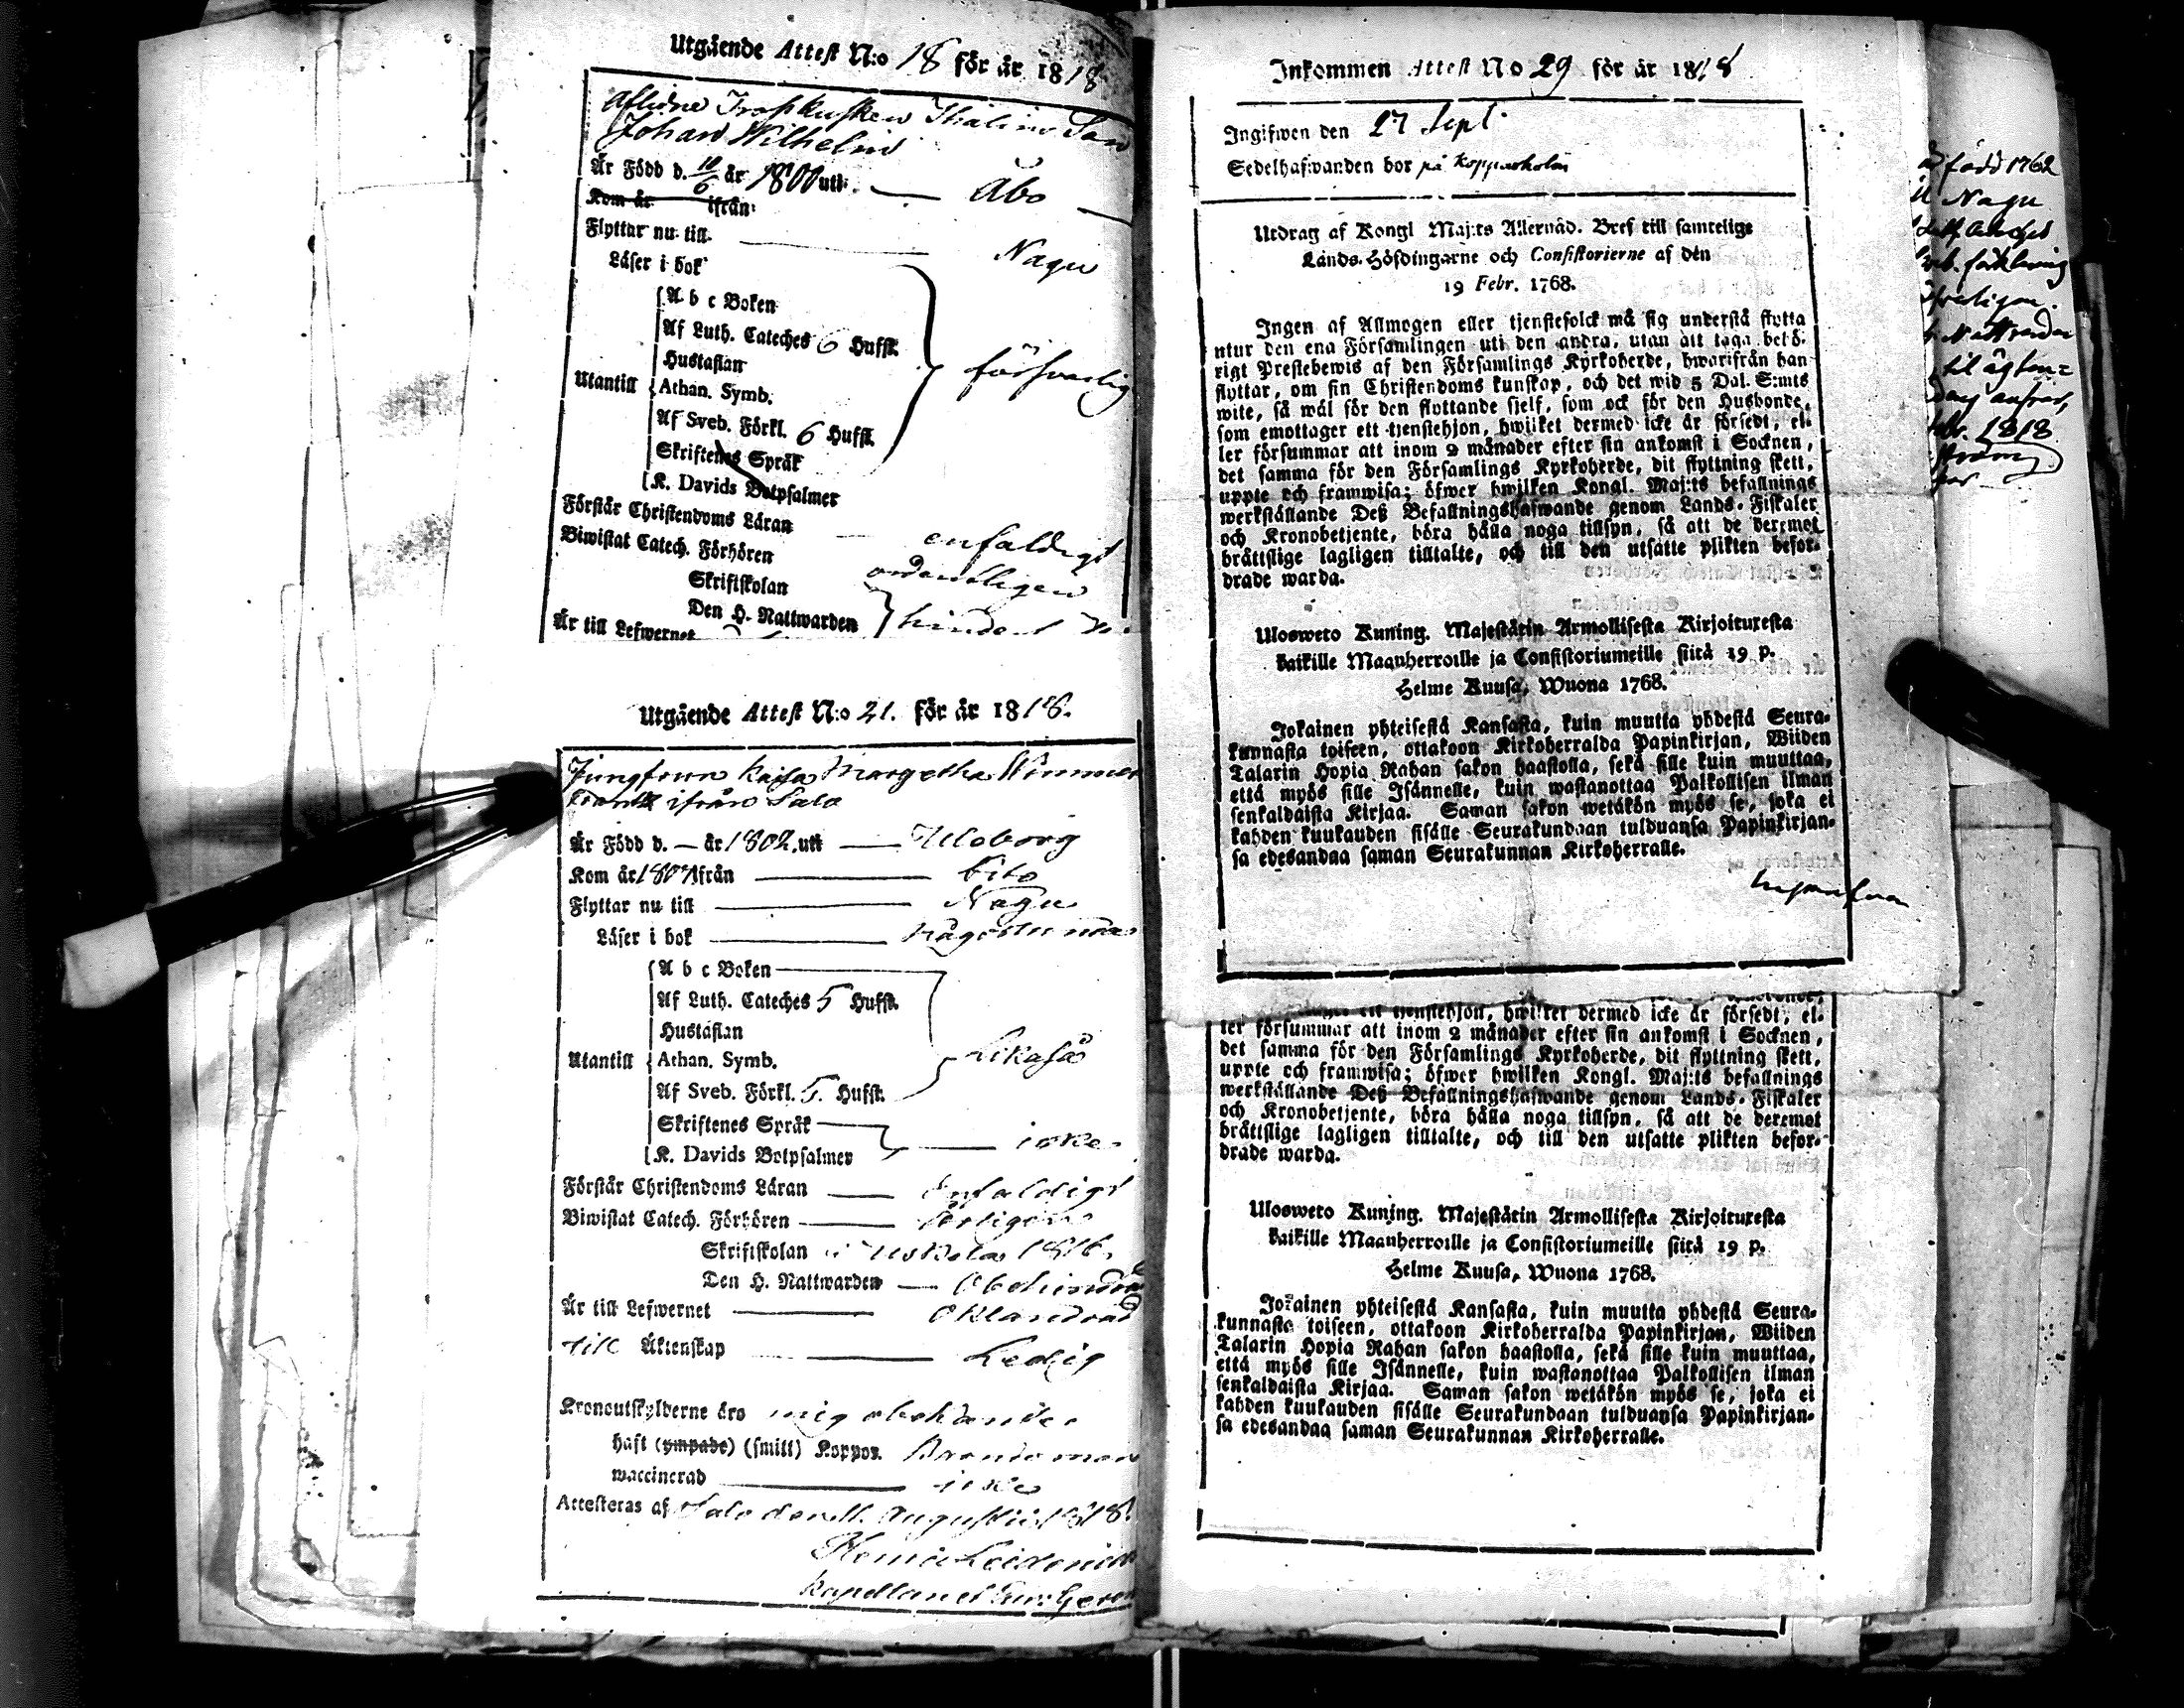 Utgående Attest N:o 18 för år 1818
Aflidne Son
Johan Wilhelm
Är Född d. 10/6 år 1800 uti Åbo
Kom år ifrån
Flyttar nu till Nagu
Läser i bok
A b c Boken
Af Luth. Cateches 6 Hufst.
Hustaflan
Utantill Athan. Symb. försvarlig
Af Sveb. Förkl. 6 Hufst.
Skriftenes Språk
K. Davids Botpsalmer
Förstår Christendoms Läran enfaldigt
Biwistat Catech. Förhören ordentligen
Skriftskolan
Den H. Nattwarden
Är till Lefwernet
Utgående Attest N:o 21. för år 1818.
Jungfrun Kajsa Margetha
ifrån Salo
Är Född d. — år 1802. uti Uleborg
Kom år 1807 ifrån
Flyttar nu till Nagu
Läser i bok
A b c Boken
Af Luth. Cateches 5 Hufst.
Hustaflan
Utantill Athan. Symb. Likaså
Af Sveb. Förkl. 5. Hufst.
Skriftenes Språk
K. Davids Botpsalmer icke
Förstår Christendoms Läran Enfaldigt
Biwistat Catech. Förhören
Skriftskolan i Uskela 1816.
Den H. Nattwarden Obehindrad
Är till Lefwernet Oklandrad
till Äktenskap Ledig
Kronoutskylderne äro mig obekante
haft (ympade) (smitt) Koppor.
waccinerad icke
Attesteras af Salo den 11. Augustii 1818.
Kapellan
Inkommen Attest No 29 för år 1818
Ingifwen den 27 Sept.
Sedelhafwanden bor på Kopparholm
Utdrag af Kongl Maj:ts Allernåd. Bref till samtelige
Lands-Höfdingarne och Consistorierne af den
19 Febr. 1768.
Ingen af Allmogen eller tjenstefolck må sig understå flytta
utur den ena Församlingen uti den andra, utan att taga behö-
rigt Prestebewis af den Församlings Kyrkoherde, hwarifrån han
flyttar, om sin Christendoms kunskap, och det wid 5 Dal. S:mts
wite, så wäl för den flyttande sjelf, som ock för den Husbonde,
som emottager ett tjenstehjon, hwilket dermed icke är försedt, el-
ler försummar att inom 2 månader efter sin ankomst i Socknen,
det samma för den Församlings Kyrkoherde, dit flyttning skett,
uppte och framwisa; öfwer hwilken Kongl. Maj:ts befallnings
werkställande Deß Befallningshafwande genom Lands-Fiskaler
och Kronobetjente, böra hålla noga tillsyn, så att de deremot
bråttslige lagligen tilltalte, och till den utsatte plikten befor-
drade warda.
Ulosweto Kuning. Majestätin Armollisesta Kirjoituxesta
kaikille Maanherroille ja Consistoriumeille siitä 19 p.
Helme Kuusa, Wuona 1768.
Jokainen yhteisestä Kansasta, kuin muutta yhdestä Seura-
kunnasta toiseen, ottakoon Kirkoherralda Papinkirjan, Wiiden
Talarin Hopia Rahan sakon haastolla, sekä sille kuin muuttaa,
että myös sille Isännelle, kuin wastanottaa Palkollisen ilman
senkaldaista Kirjaa. Saman sakon wetäkön myös se, joka ei
kahden kuukauden sisälle Seurakundaan tulduansa Papinkirjan-
sa edesandaa saman Seurakunnan Kirkoherralle.
tjenstehjon, hwilket dermed icke är försedt, el-
ler försummar att inom 2 månader efter sin ankomst i Socknen,
det samma för den Församlings Kyrkoherde, dit flyttning skett,
uppte och framwisa; öfwer hwilken Kongl. Maj:ts befallnings
werkställande Deß Befallningshafwande genom Lands-Fiskaler
och Kronobetjente, böra hålla noga tillsyn, så att de deremot
bråttslige lagligen tilltalte, och till den utsatte plikten befor-
drade warda.
Ulosweto Kuning. Majestätin Armollisesta Kirjoituxesta
kaikille Maanherroille ja Consistoriumeille siitä 19 p.
Helme Kuusa, Wuona 1768.
Jokainen yhteisestä Kansasta, kuin muutta yhdestä Seura-
kunnasta toiseen, ottakoon Kirkoherralda Papinkirjan, Wiiden
Talarin Hopia Rahan sakon haastolla, sekä sille kuin muuttaa,
että myös sille Isännelle, kuin wastanottaa Palkollisen ilman
senkaldaista Kirjaa. Saman sakon wetäkön myös se, joka ei
kahden kuukauden sisälle Seurakundaan tulduansa Papinkirjan-
sa edesandaa saman Seurakunnan Kirkoherralle.
född 1762
Nagu
til
1818